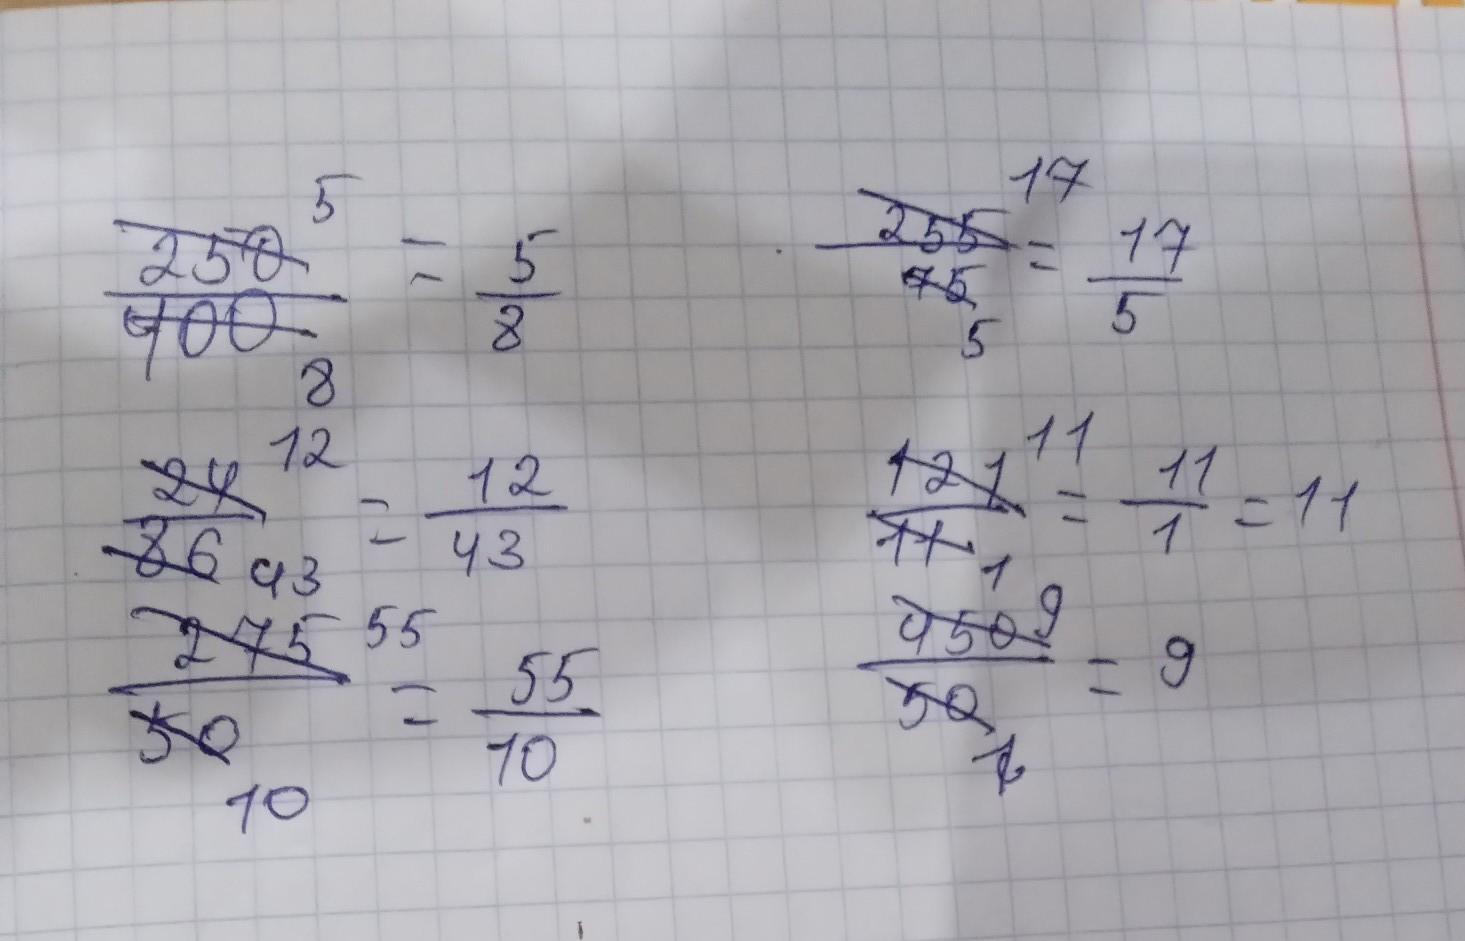 250/400 5 8 = 5/8
255/75 17 5 = 17/5
24/86 12 43 = 12/43
121/11 11 1 = 11/1 = 11
275/50 55 10 = 55/10
450/50 9 1 = 9